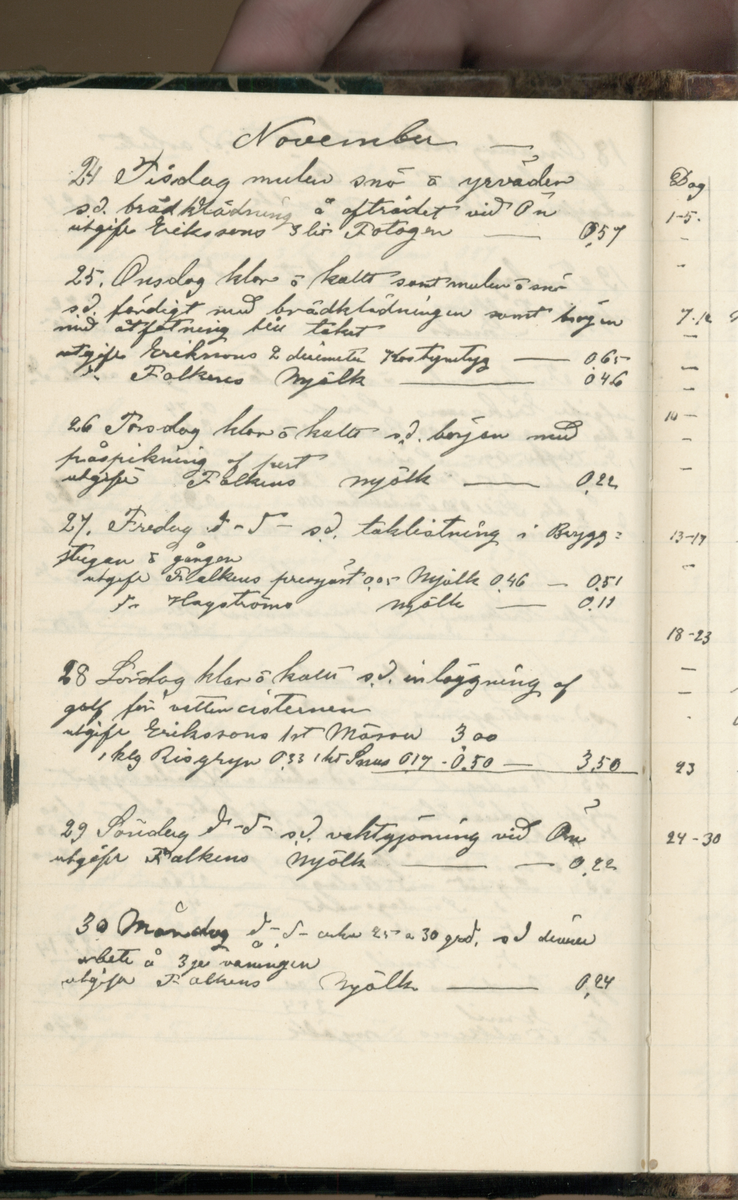 November —
24 Tisdag mulen snö o yrväder
s.d. brädklädning å afträdet vid Ån
utgift Erikssons 3 lit Fotogen — 0,57
25. Onsdag klar o kallt samt mulen o snö
s.d. färdigt med brädklädningen samt började
med till taket
utgift Erikssons 2 Kostymtyg — 0,65
d:o Falkens Mjölk — 0,46
26 Torsdag klar o kallt s.d. började med
påspikning af pert
utgift Falkens Mjölk — 0,22
27. Fredag d-o- s.d. taklistning i Brygg=
stugan o gången
utgift Falkens pressjäst 0,05 Mjölk 0,46 — 0,51
d:o Hagströms Mjölk — 0,11
28 Lördag klar o kallt s.d. inläggning af
golf för vattencisternen
utgift Erikssons 1 st Mössa 3,00
1 klg Risgryn 0,33 1 ht Snus 0,17 - 0,50 — 3,50
29 Söndag d-o- s.d. vaktgjörning vid Ån
utgift Falkens Mjölk — 0,22
30 Måndag d-o- cirka 25 a 30 grad. s d diverse
arbete å 3je våningen
utgift Falkens Mjölk — 0,24
Dag
1-5.
-
-
7-12
-
-
-
-
-
13-17
-
18-23
-
-
-
23
24-30